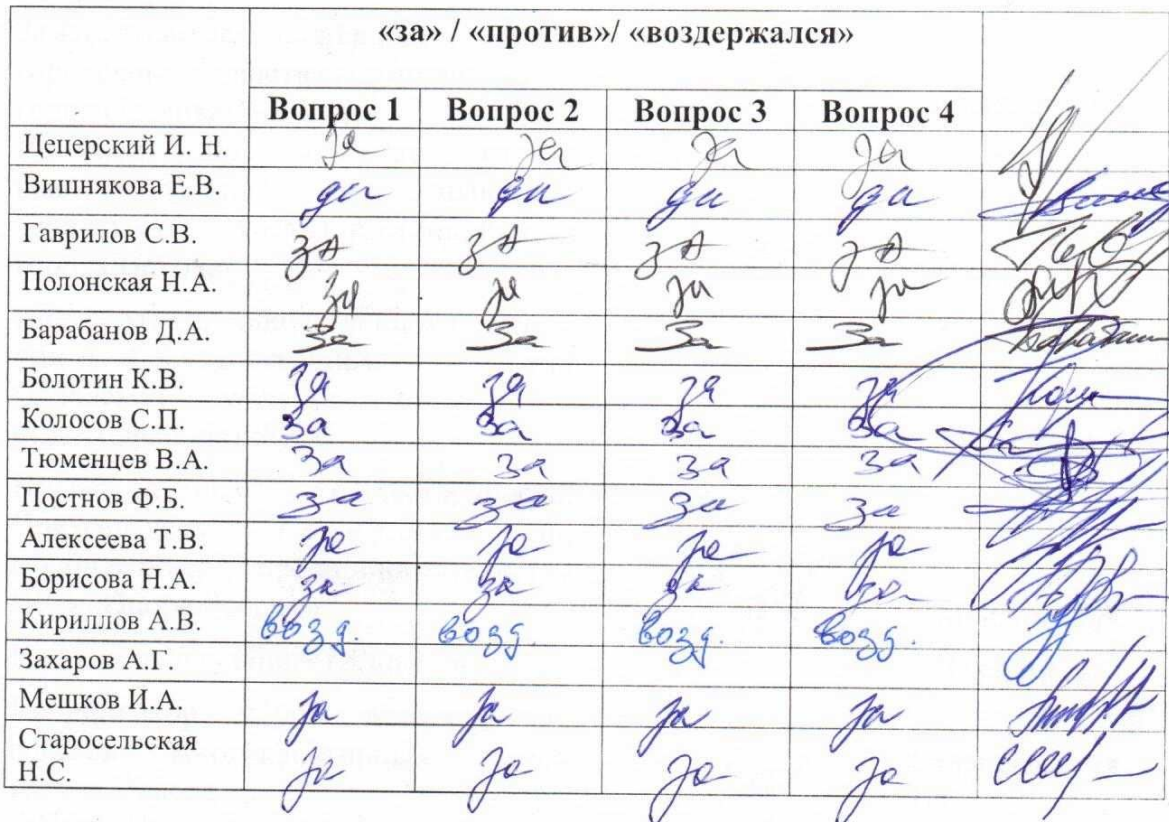 «за» / «против»/ «воздержался»
Вопрос 1 Вопрос 2 Вопрос 3 Вопрос 4
Цецерский И. Н. за за за за
Вишнякова Е.В. да да да да
Гаврилов С.В. за за за за
Полонская Н.А. за за за за
Барабанов Д.А. За За За За
Болотин К.В. за за за за
Колосов С.П. за за за за
Тюменцев В.А. за за за за
Постнов Ф.Б. за за за за
Алексеева Т.В. за за за за
Борисова Н.А. за за за за
Кириллов А.В. возд. возд. возд. возд.
Захаров А.Г.
Мешков И.А. за за за за
Старосельская
Н.С. за за за за